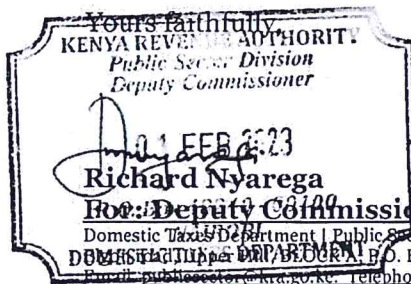 Yours faithfully,
KENYA REVENUE AUTHORITY
Public Sector Division
Deputy Commissioner
01 FEB 2023
Richard Nyarega
For: Deputy Commissio
Domestic Taxes Department | Public Se
DOMESTIC TAXES DEPARTMENT
Email: publicsector@kra.go.ke. Telepho